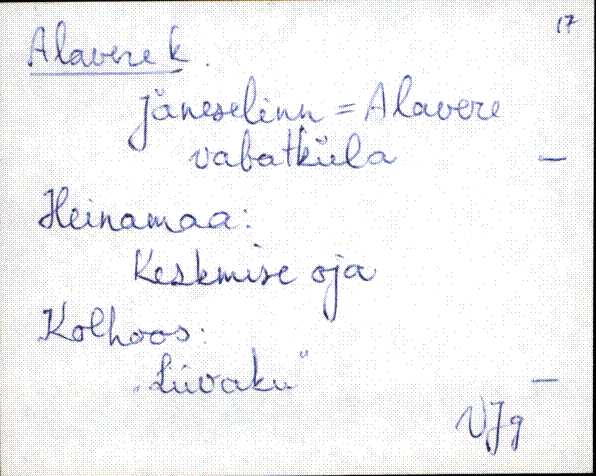 17
Alavere k.
Jäneselinn = Alavere
vabatküla —
Heinamaa:
Keskmise oja
Kolhoos:
"Liivaku" —
VJg